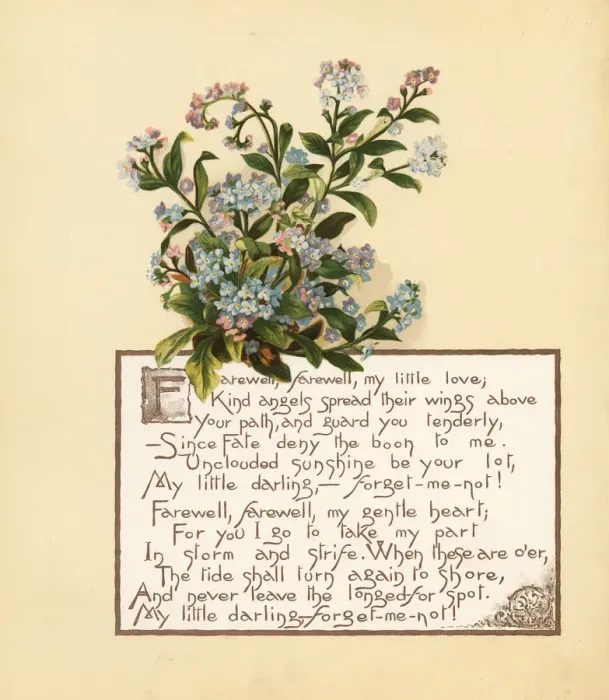 Farewell, farewell, my little love;
Kind angels spread their wings above
Your path, and guard you tenderly,
—Since Fate deny the boon to me.
Unclouded sunshine be your lot,
My little darling,— forget-me-not!
Farewell, farewell, my gentle heart;
For you I go to take my part
In storm and strife. When these are o'er,
The tide shall turn again to shore,
And never leave the longed-for spot.
My little darling,—forget-me-not!